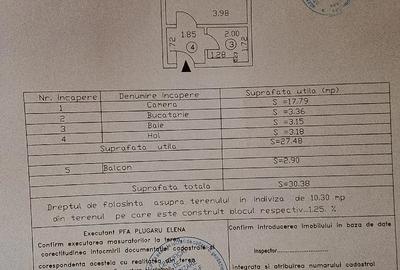 3.98
1.85
2.00
4
3
1.72
1.28
1.72
Nr. încapere Denumire încapere Suprafata utila (mp)
1 Camera S =17.79
2 Bucatarie S =3.36
3 Baie S =3.15
4 Hol S =3.18
Suprafata utila S=27.48
5 Balcon S =2.90
Suprafata totala S=30.38
Dreptul de folosinta asupra terenului in indiviza de 10.30 mp
din terenul pe care este construit blocul respectiv...1.25. %
Executant PFA PLUGARU ELENA
Confirm executarea masuratorilor la teren,
corectitudinea intocmirii documentatiei cadastrale si
corespondenta acesteia cu realitatea din teren
Confirm introducerea imobilului in baza de date
Inspector
integrata si atribuirea numarului cadastral